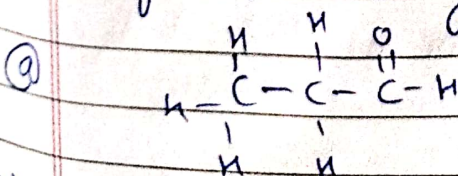 H H O
(a) H - C - C - C - H
H H